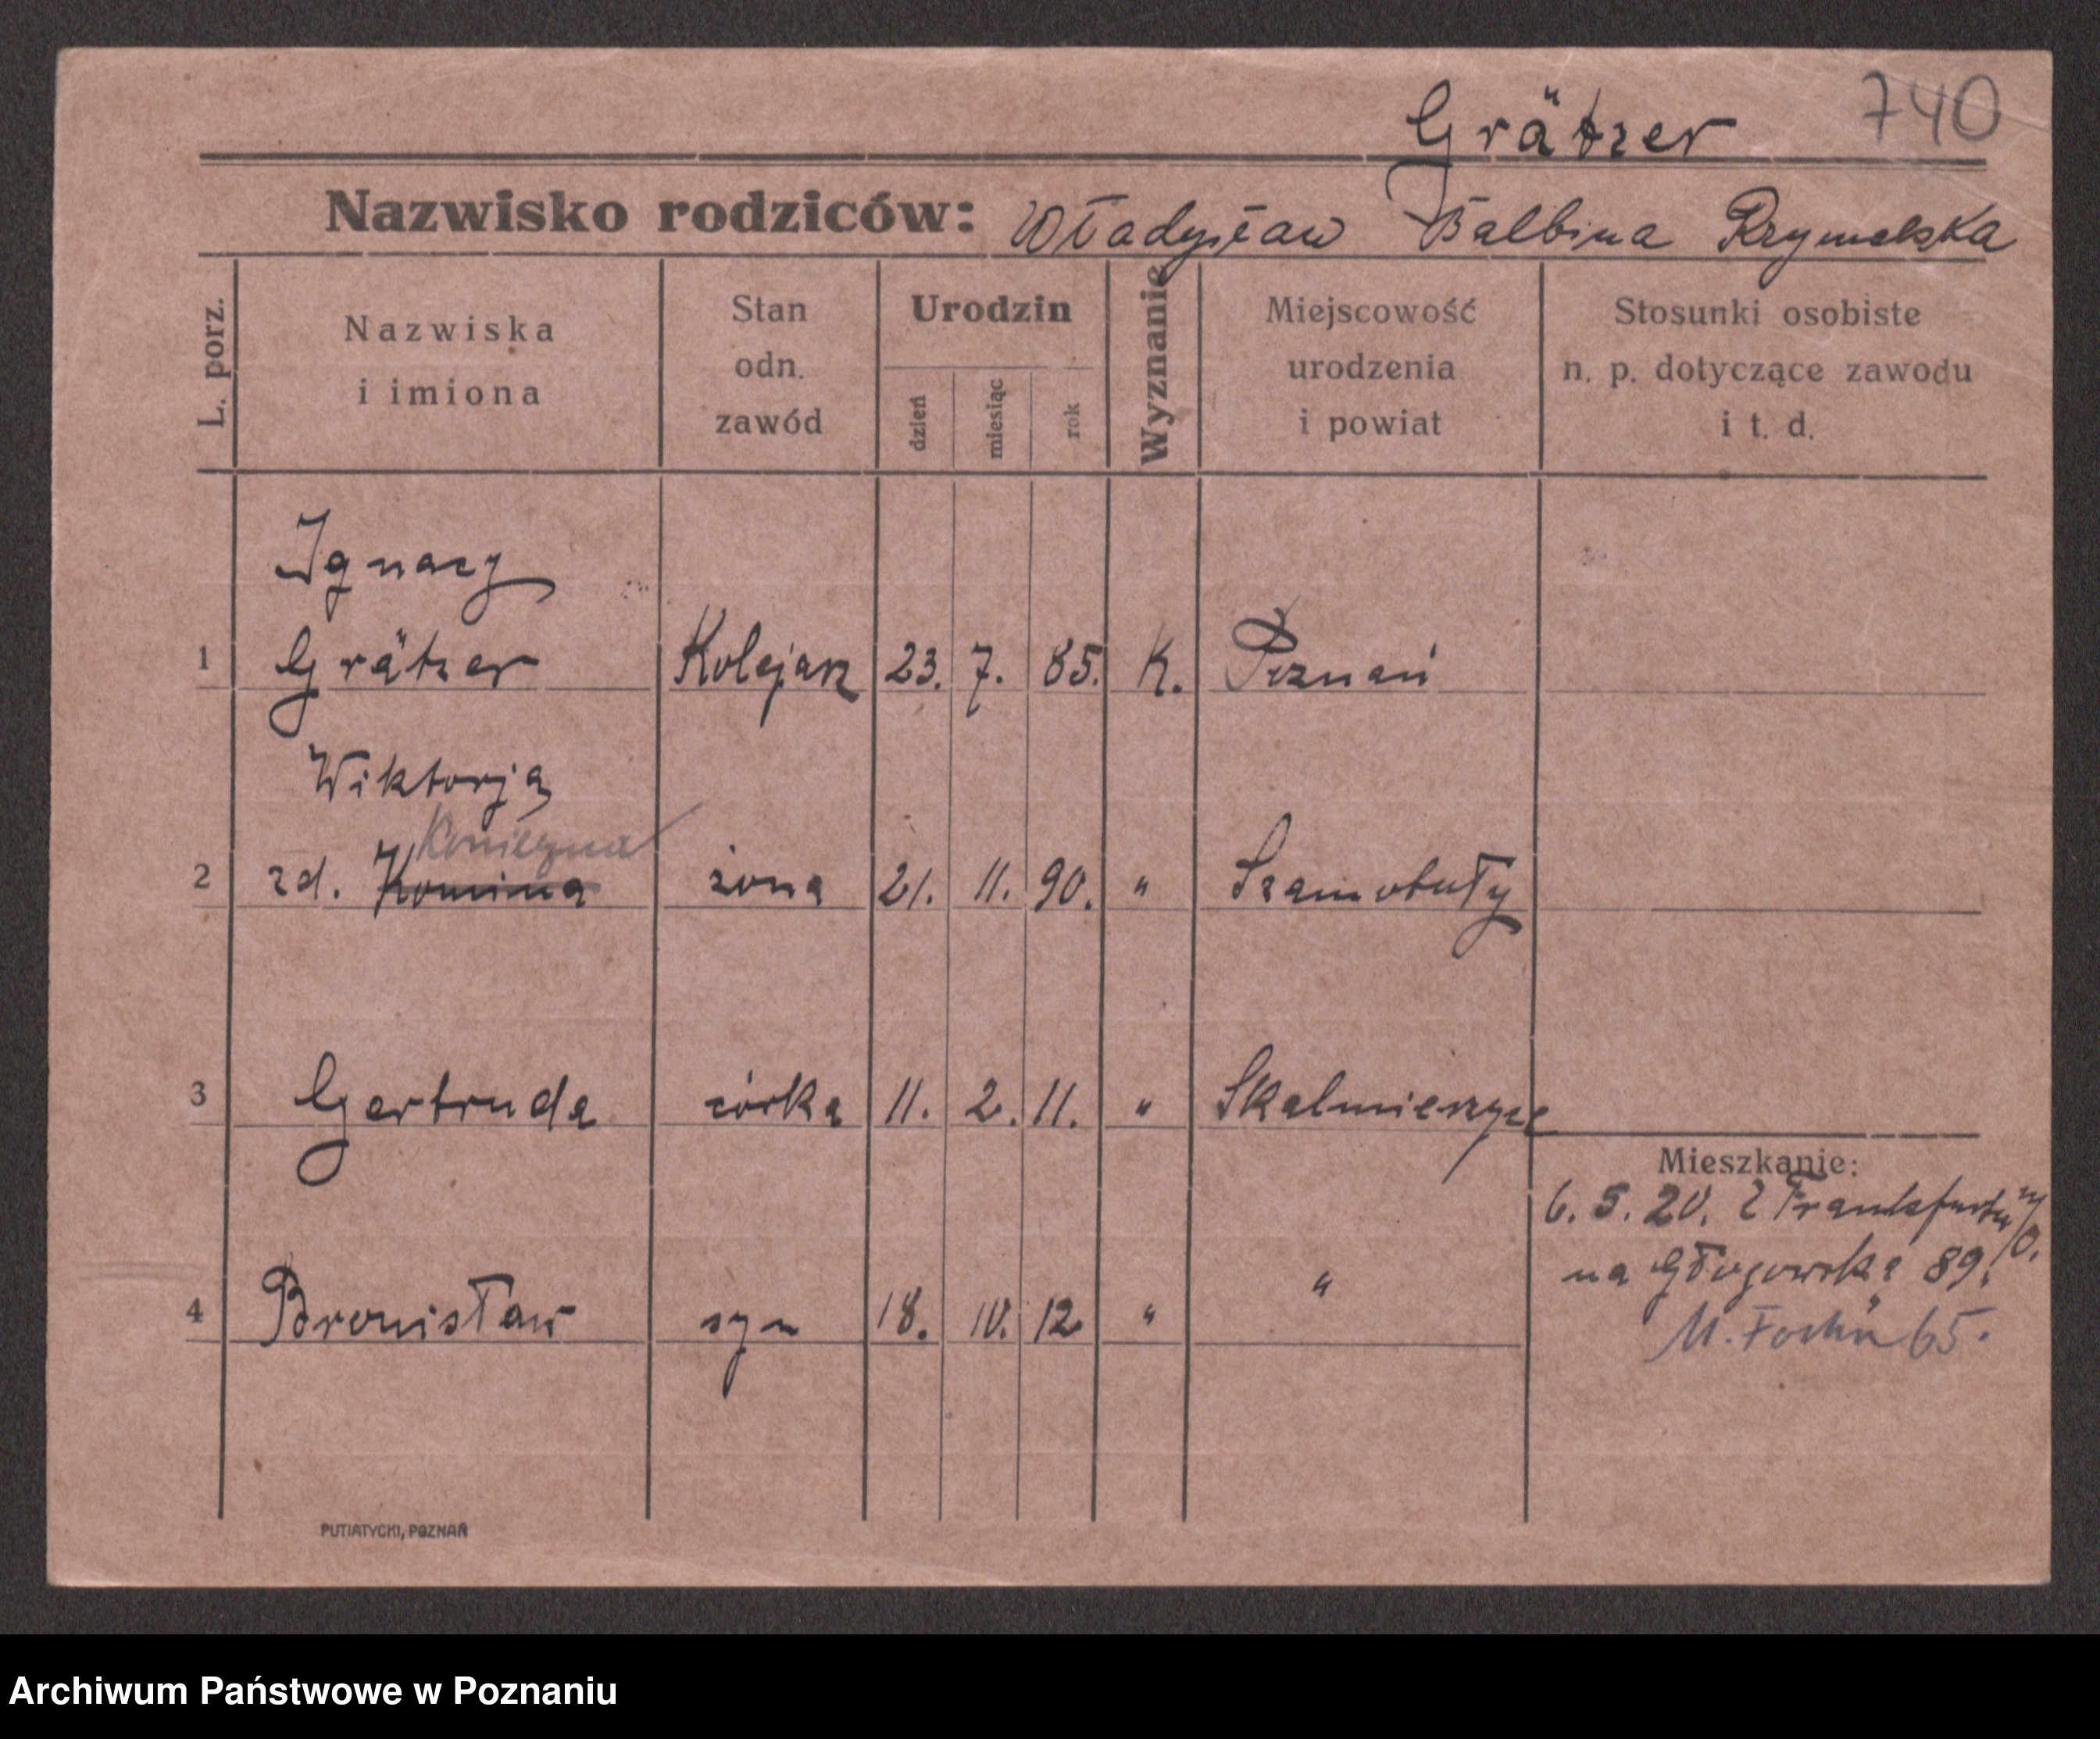 740
Grätzer
Nazwisko rodziców: Władysław Balbina Rzymelska
L. porz.
Nazwiska
i imiona
Stan
odn.
zawód
Urodzin
dzień
miesiąc
rok
Wyznanie
Miejscowość
urodzenia
i powiat
Stosunki osobiste
n. p. dotyczące zawodu
i t. d.
Ignacy
1 Grätzer Kolejarz 23. 7. 85. K. Poznań
Wiktorja
Konieczna
2 zd. Komina żona 21. 11. 90. " Szamotuły
3 Gertruda córka 11. 2. 11. " Skalmierzyce
Mieszkanie:
6. 5. 20. z Frankfurtu n/O.
na Głogowską 89.
4 Bronisław syn 18. 10. 12 " "
M. Focha 65.
PUTIATYCKI, POZNAŃ
Archiwum Państwowe w Poznaniu